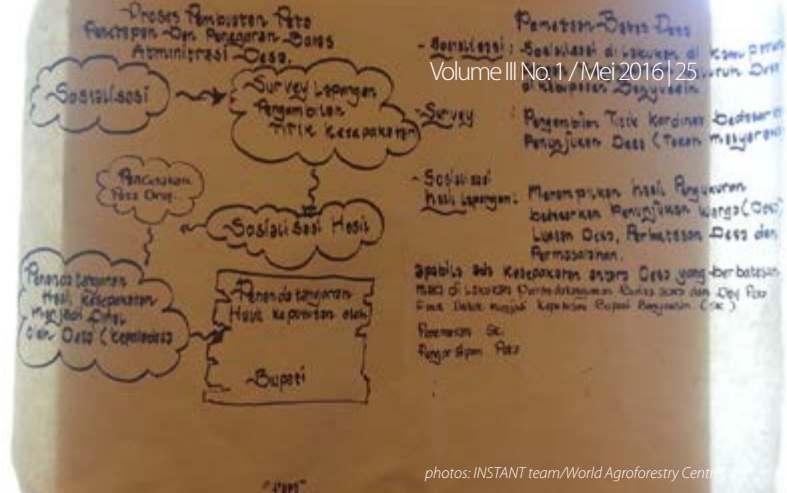 Proses Pembuatan Peta
Penetapan Dan Penegasan Batas
Administrasi Desa.
Sosialisasi
Survey Lapangan
Pengambilan
Titik Kesepakatan
Sosialisasi Hasil
Pencetakan
Peta Draf
Penandatanganan
Hasil Kesepakatan
Menjadi
oleh Desa (Kepala desa
Penandatanganan
Hasil Keputusan oleh
Bupati
Penetasan Batas Desa
- Sosialisasi : Sosialisasi di Lakukan di
Volume III No. 1 / Mei 2016 | 25
Desa
di Kabupaten Banyuasin
- Survey : Pengambilan Titik Kordinat Bedasarkan
Penunjukan Desa (Tokoh Masyarakat
- Sosialisasi
hasil Lapangan : Menampilkan hasil Pengukuran
Penunjukan Warga (Desa)
Luasan Desa, Perbatasan Desa dan
Permasalahan.
apabila ada Kesepakatan antara Desa yang berbatasan
maka di Lakukan Penandatanganan dan Peta
Untuk menjadi Keputusan Bupati Banyuasin (SK)
SK.
Pengarsipan Peta
photos: INSTANT team/World Agroforestry Centre